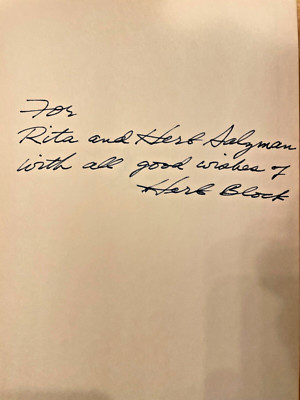 For
Rita and Herb Salzman
with all good wishes of
Herb Block